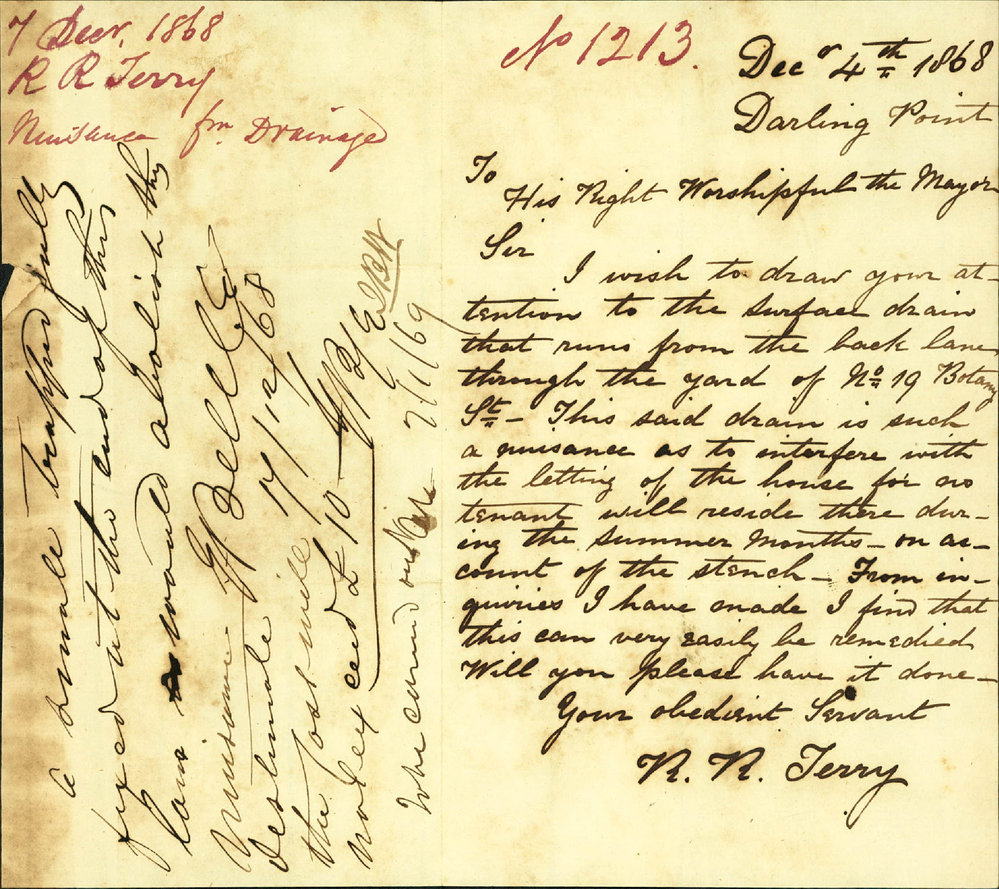 7 Decr. 1868
R R Terry
Nuisance fm. Drainage
No 1213.
Decr 4th 1868
Darling Point
To
His Right Worshipful the Mayor
Sir
I wish to draw your at-
tention to the surface drain
that runs from the back lane
through the yard of No 19 Botany
St - This said drain is such
a nuisance as to interfere with
the letting of the house for no
tenant will reside there dur-
ing the summer months - on ac-
count of the stench - From in-
quiries I have made I find that
this can very easily be remedied
Will you please have it done -
Your obedient Servant
R. R. Terry
a small trapped gully
fixed at the end of this
lane would abolish the
nuisance Bell CE
Estimate 17/12/68
the cost will
not exceed £10
to be carried out
7/1/69